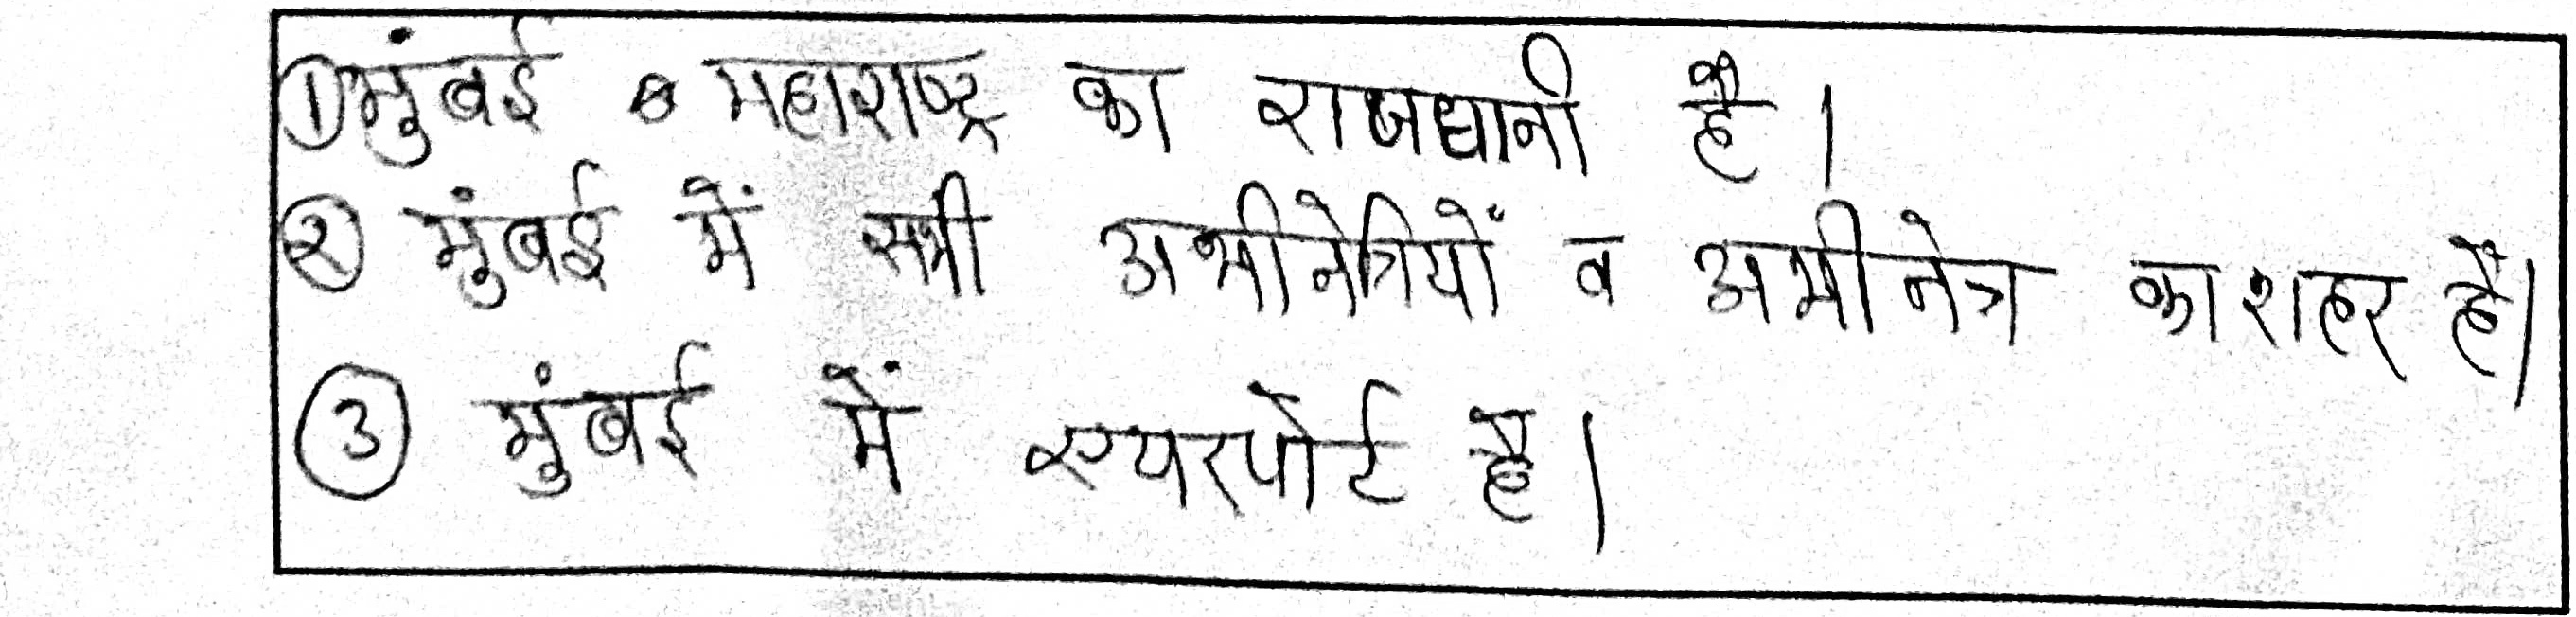 ① मुंबई महाराष्ट्र का राजधानी है।
② मुंबई में सभी अभीनेत्रियों व अभीनेत्र का शहर है।
③ मुंबई में एयरपोर्ट है।